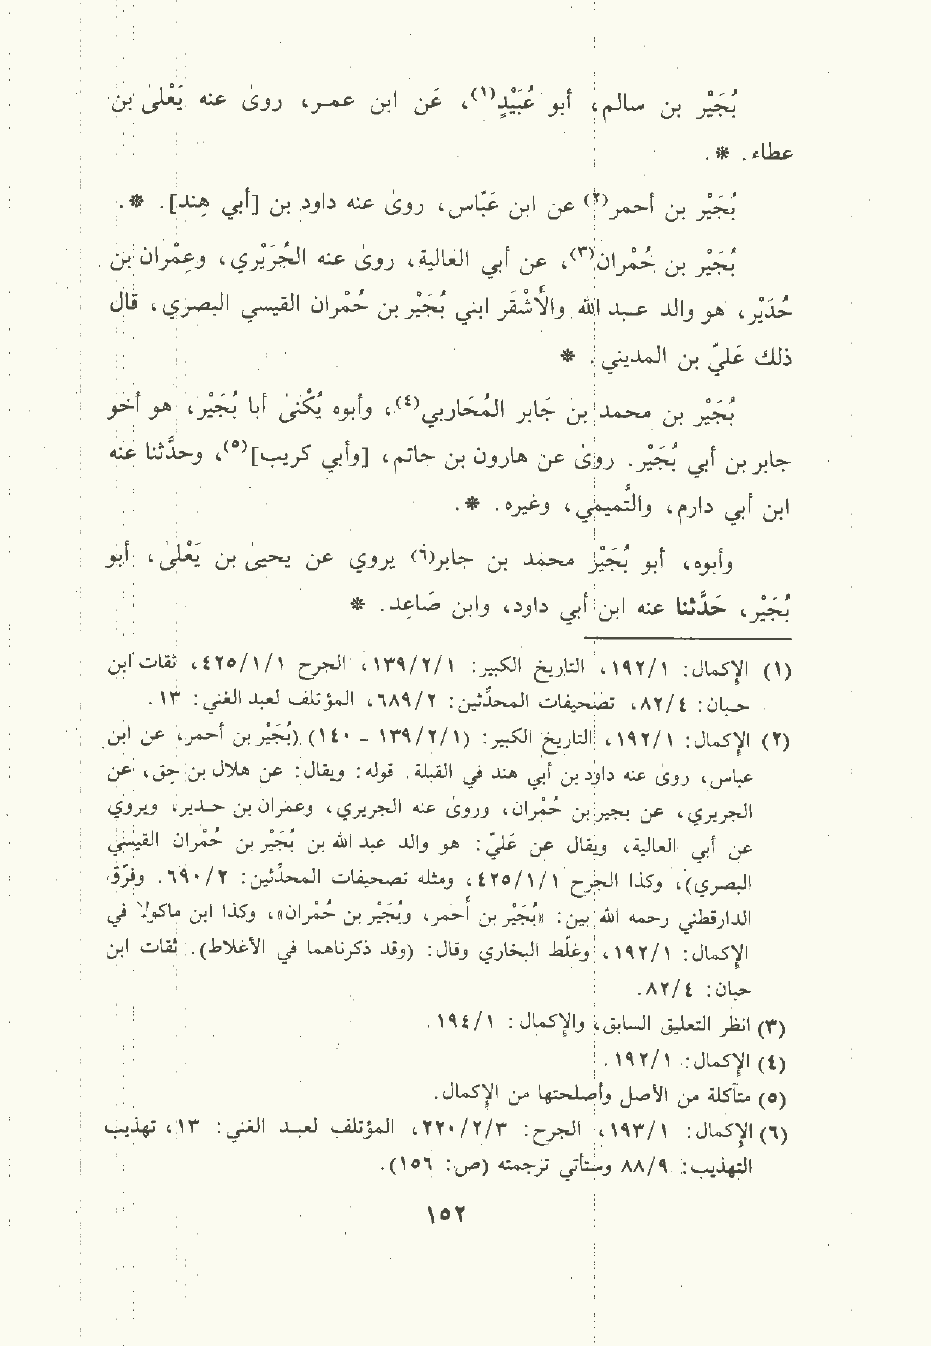 بُجَيْر بن سالم، أبو عُبَيْدٍ(١)، عَن ابن عمـر، روىٰ عنه يَعْلىٰ بن
عطاء. * .
بُجَيْر بن أحمر(٢) عن ابن عَبّاس، روىٰ عنه داود بن [أبي هِند]. * .
بُجَيْر بن حُمْران(٣)، عن أبي العالية، روىٰ عنه الجُرَيْري، وعِمْران بن
حُدَيْر، هو والد عبـد الله والأشْقَر ابني بُجَيْر بن حُمْران القيسي البصري، قال
ذلك عَليّ بن المديني. *
بُجَيْر بن محمد بن جابر المُحَاربي(٤)، وأبوه يُكْنىٰ أبا بُجَيْر، هو أخو
جابر بن أبي بُجَيْر. روىٰ عن هارون بن حاتم، [وأبي كريب](٥)، وحدَّثنا عنه
ابن أبي دارم، والتَّميمي، وغيره. * .
وأبوه، أبو بُجَيْر محمد بن جابر(٦) يروي عن يحيىٰ بن يَعْلىٰ، أبو
بُجَيْر، حَدَّثنا عنه ابن أبي داود، وابن صَاعِد. *
(١) الإكمال: ١٩٢/١، التاريخ الكبير: ١٣٩/٢/١، الجرح ٤٢٥/١/١، ثقات ابن
حبـان: ٨٢/٤، تصحيفات المحدّثين: ٦٨٩/٢، المؤتلف لعبد الغني: ١٣.
(٢) الإكمال: ١٩٢/١، التاريخ الكبير: (١٣٩/٢/١ - ١٤٠) (بُجَيْر بن أحمر، عن ابن
عباس، روى عنه داود بن أبي هند في القبلة. قوله: ويقال: عن هلال بن حق، عن
الجريري، عن بجير بن حُمْران، وروى عنه الجريري، وعمران بن حـدير، ويروي
عن أبي العالية، ويقال عن عَليّ: هو والد عبد الله بن بُجَيْر بن حُمْران القيسي
البصري)، وكذا الجرح ٤٢٥/١/١، ومثله تصحيفات المحدّثين: ٦٩٠/٢. وفرّق
الدارقطني رحمه الله بين: «بُجَيْر بن أحمر، وبُجَيْر بن حُمْران»، وكذا ابن ماكولا في
الإكمال: ١٩٢/١، وغلّط البخاري وقال: (وقد ذكرناهما في الأغلاط). ثقات ابن
حبان: ٨٢/٤.
(٣) انظر التعليق السابق، والإكمال: ١٩٤/١.
(٤) الإكمال: ١٩٢/١.
(٥) متآكلة من الأصل وأصلحتها من الإكمال.
(٦) الإكمال: ١٩٣/١، الجرح: ٢٢٠/٢/٣، المؤتلف لعبـد الغني: ١٣، تهذيب
التهذيب: ٨٨/٩ وستأتي ترجمته (ص: ١٥٦).
١٥٢